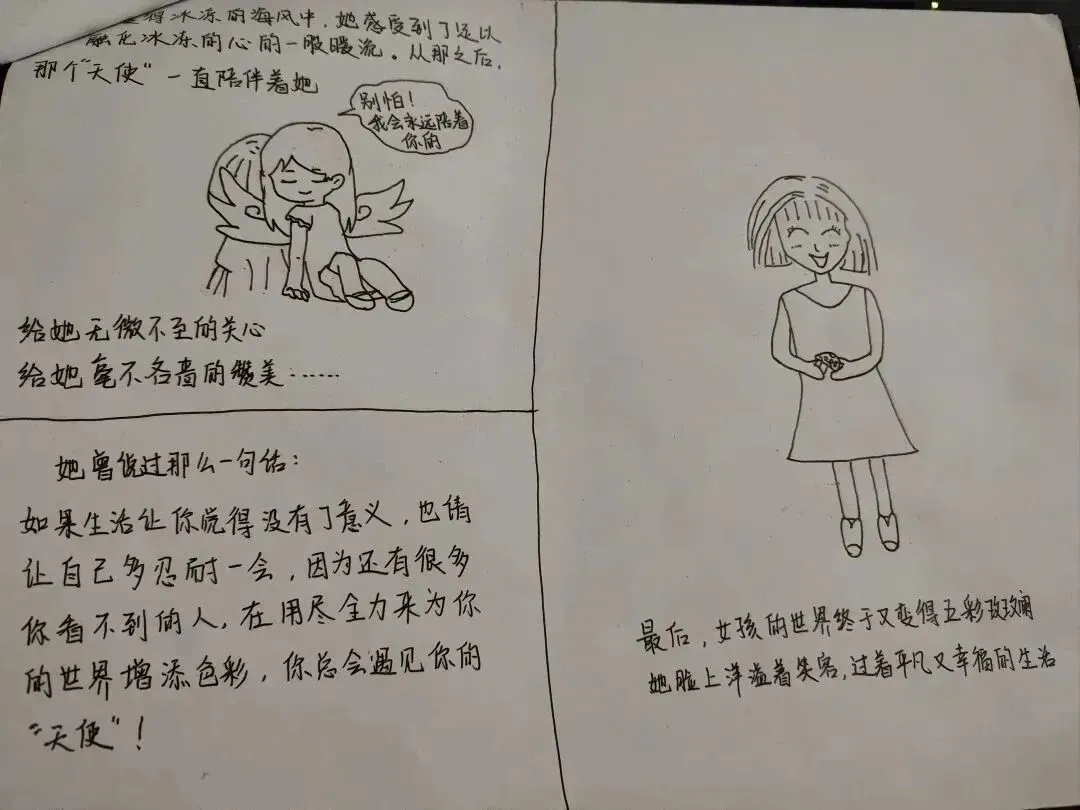 冰冻的海风中，她感受到了足以
融化冰冻的心的一股暖流。从那之后，
那个“天使”一直陪伴着她
别怕！
我会永远陪着
你的
给她无微不至的关心
给她毫不吝啬的赞美……
她曾说过那么一句话：
如果生活让你觉得没有了意义，也请
让自己多忍耐一会，因为还有很多
你看不到的人，在用尽全力来为你
的世界增添色彩，你总会遇见你的
“天使”！
最后，女孩的世界终于又变得五彩斑斓
她脸上洋溢着笑容，过着平凡又幸福的生活